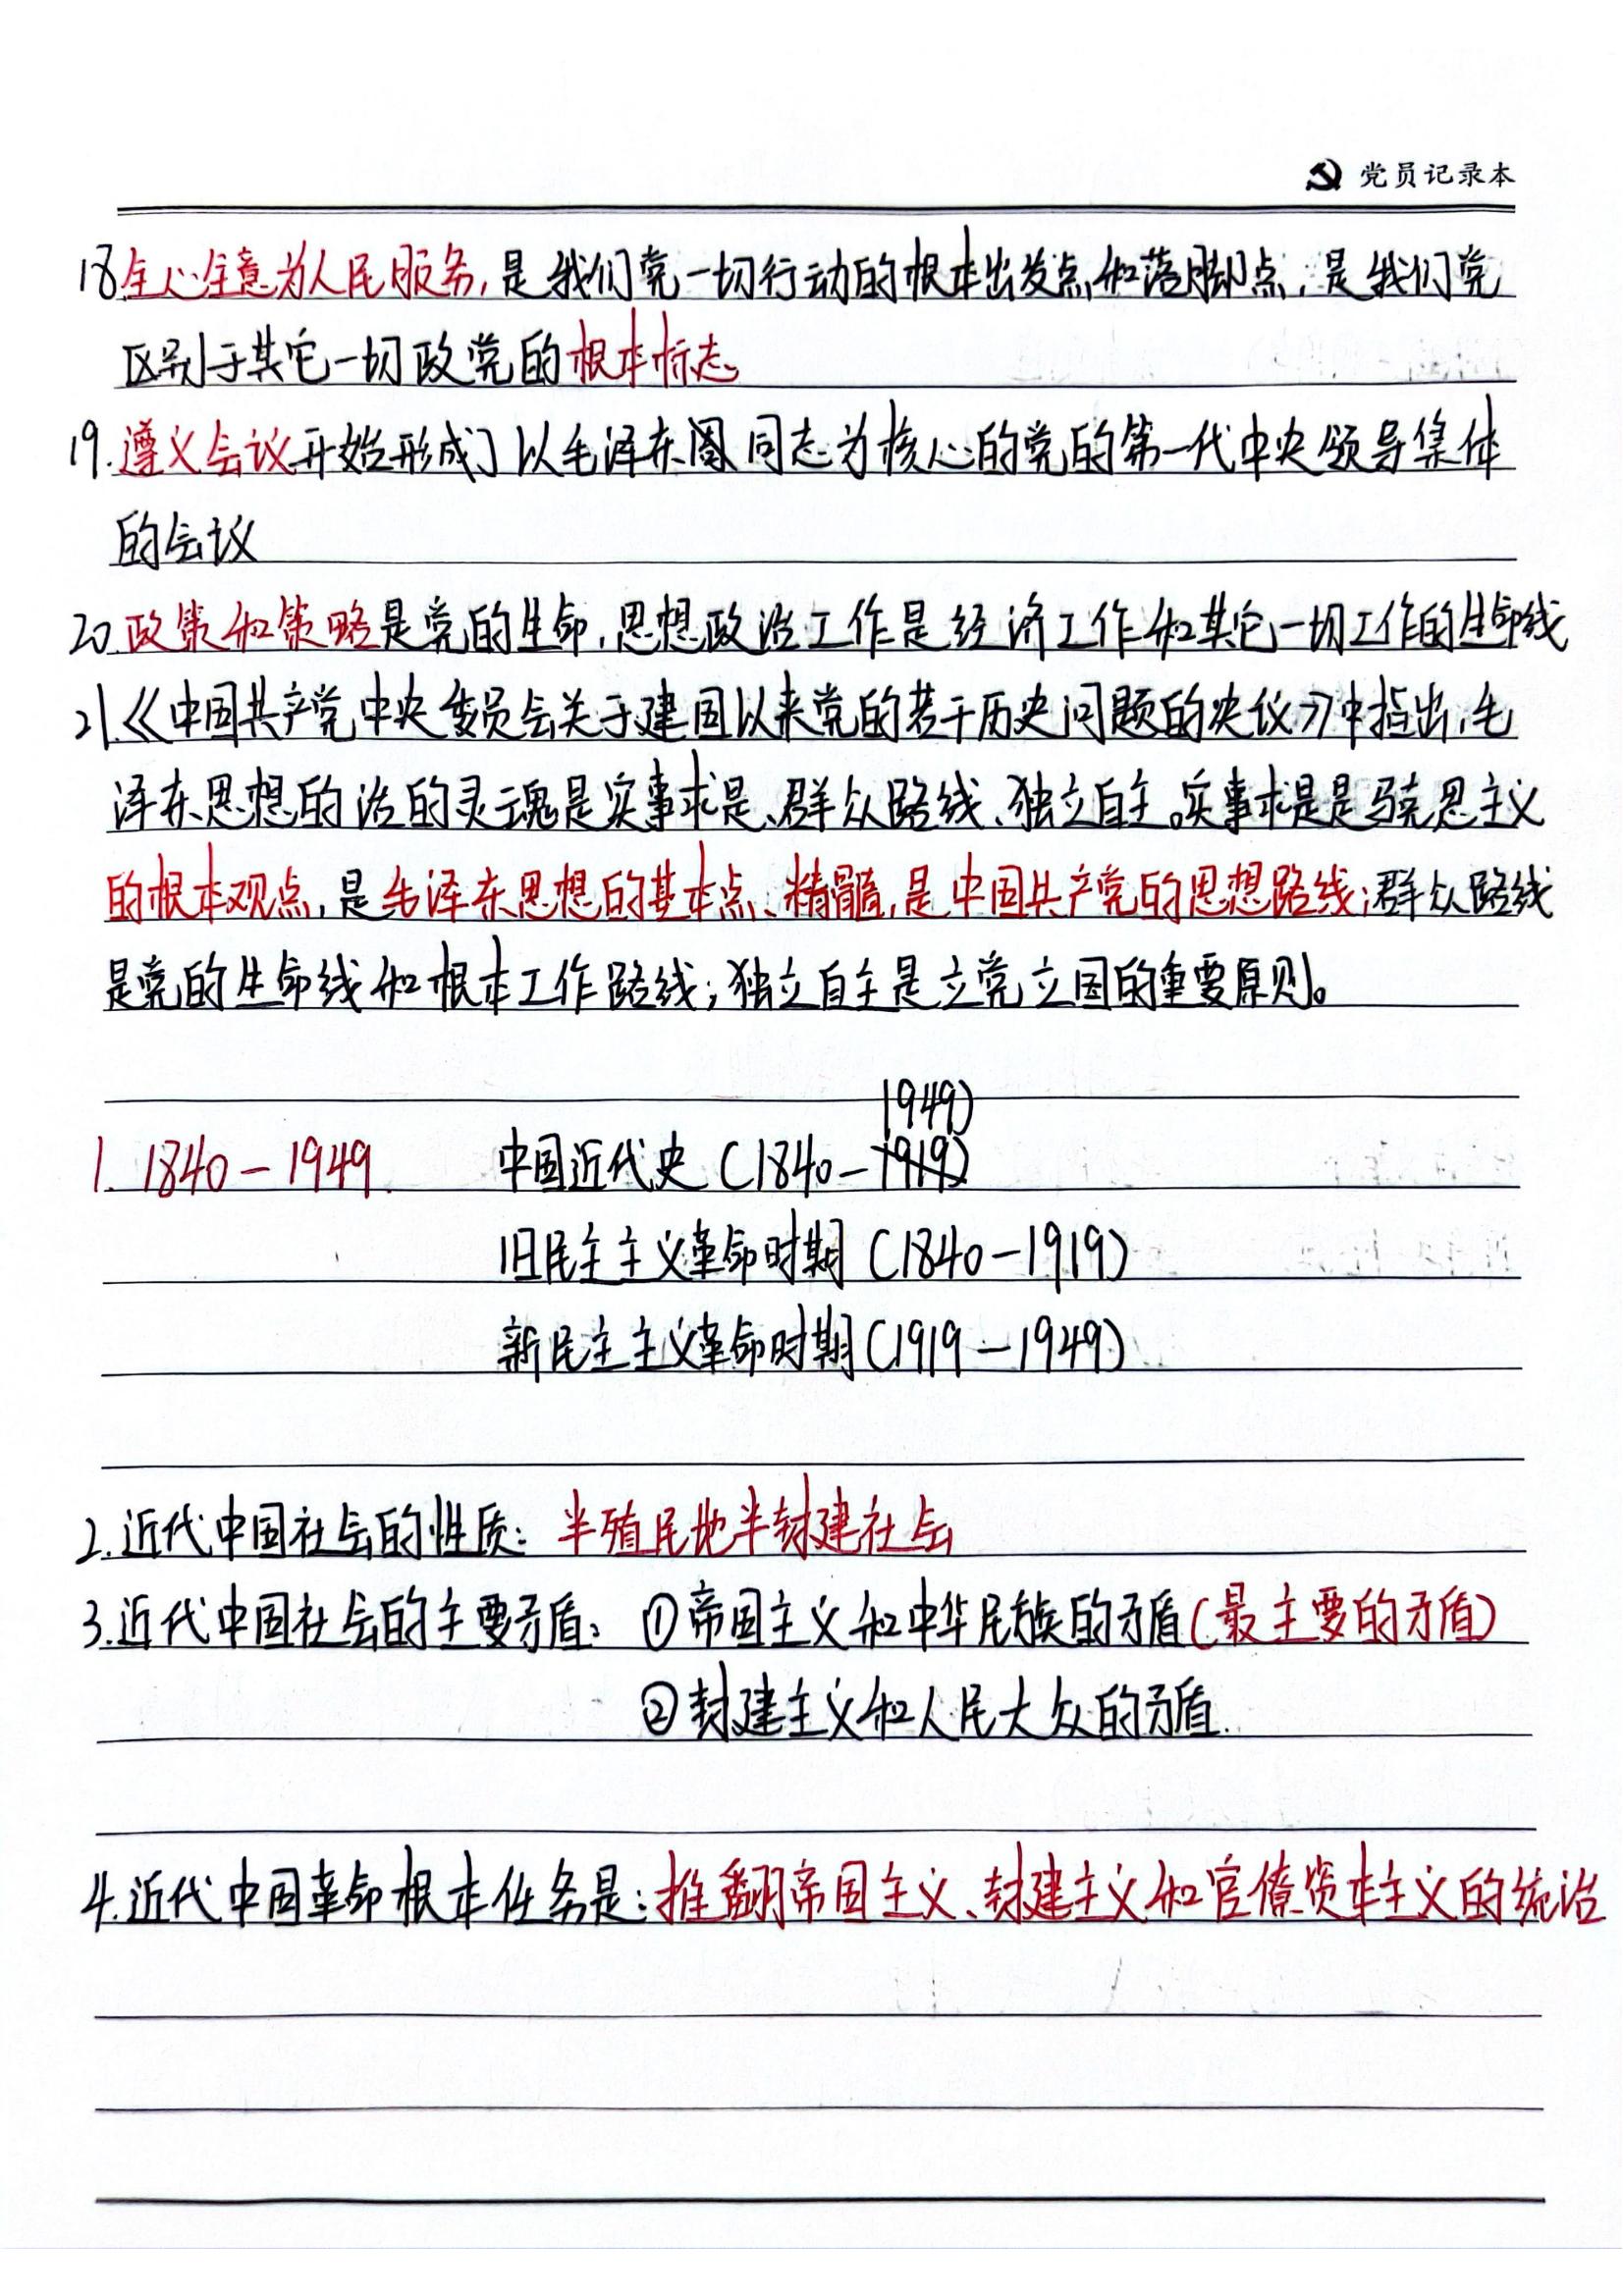 党员记录本
18全心全意为人民服务,是我们党一切行动的根本出发点和落脚点,是我们党
区别于其它一切政党的根本标志。
19.遵义会议开始形成了以毛泽东同志为核心的党的第一代中央领导集体
的会议
20.政策和策略是党的生命,思想政治工作是经济工作和其它一切工作的生命线
21.《中国共产党中央委员会关于建国以来党的若干历史问题的决议》中指出,毛
泽东思想的活的灵魂是实事求是、群众路线、独立自主。实事求是是马克思主义
的根本观点,是毛泽东思想的基本点、精髓,是中国共产党的思想路线;群众路线
是党的生命线和根本工作路线;独立自主是立党立国的重要原则。
1949)
1. 1840-1949. 中国近代史(1840-1919)
旧民主主义革命时期(1840-1919)
新民主主义革命时期(1919-1949)
2.近代中国社会的性质:半殖民地半封建社会
3.近代中国社会的主要矛盾:①帝国主义和中华民族的矛盾(最主要的矛盾)
②封建主义和人民大众的矛盾.
4.近代中国革命根本任务是:推翻帝国主义、封建主义和官僚资本主义的统治